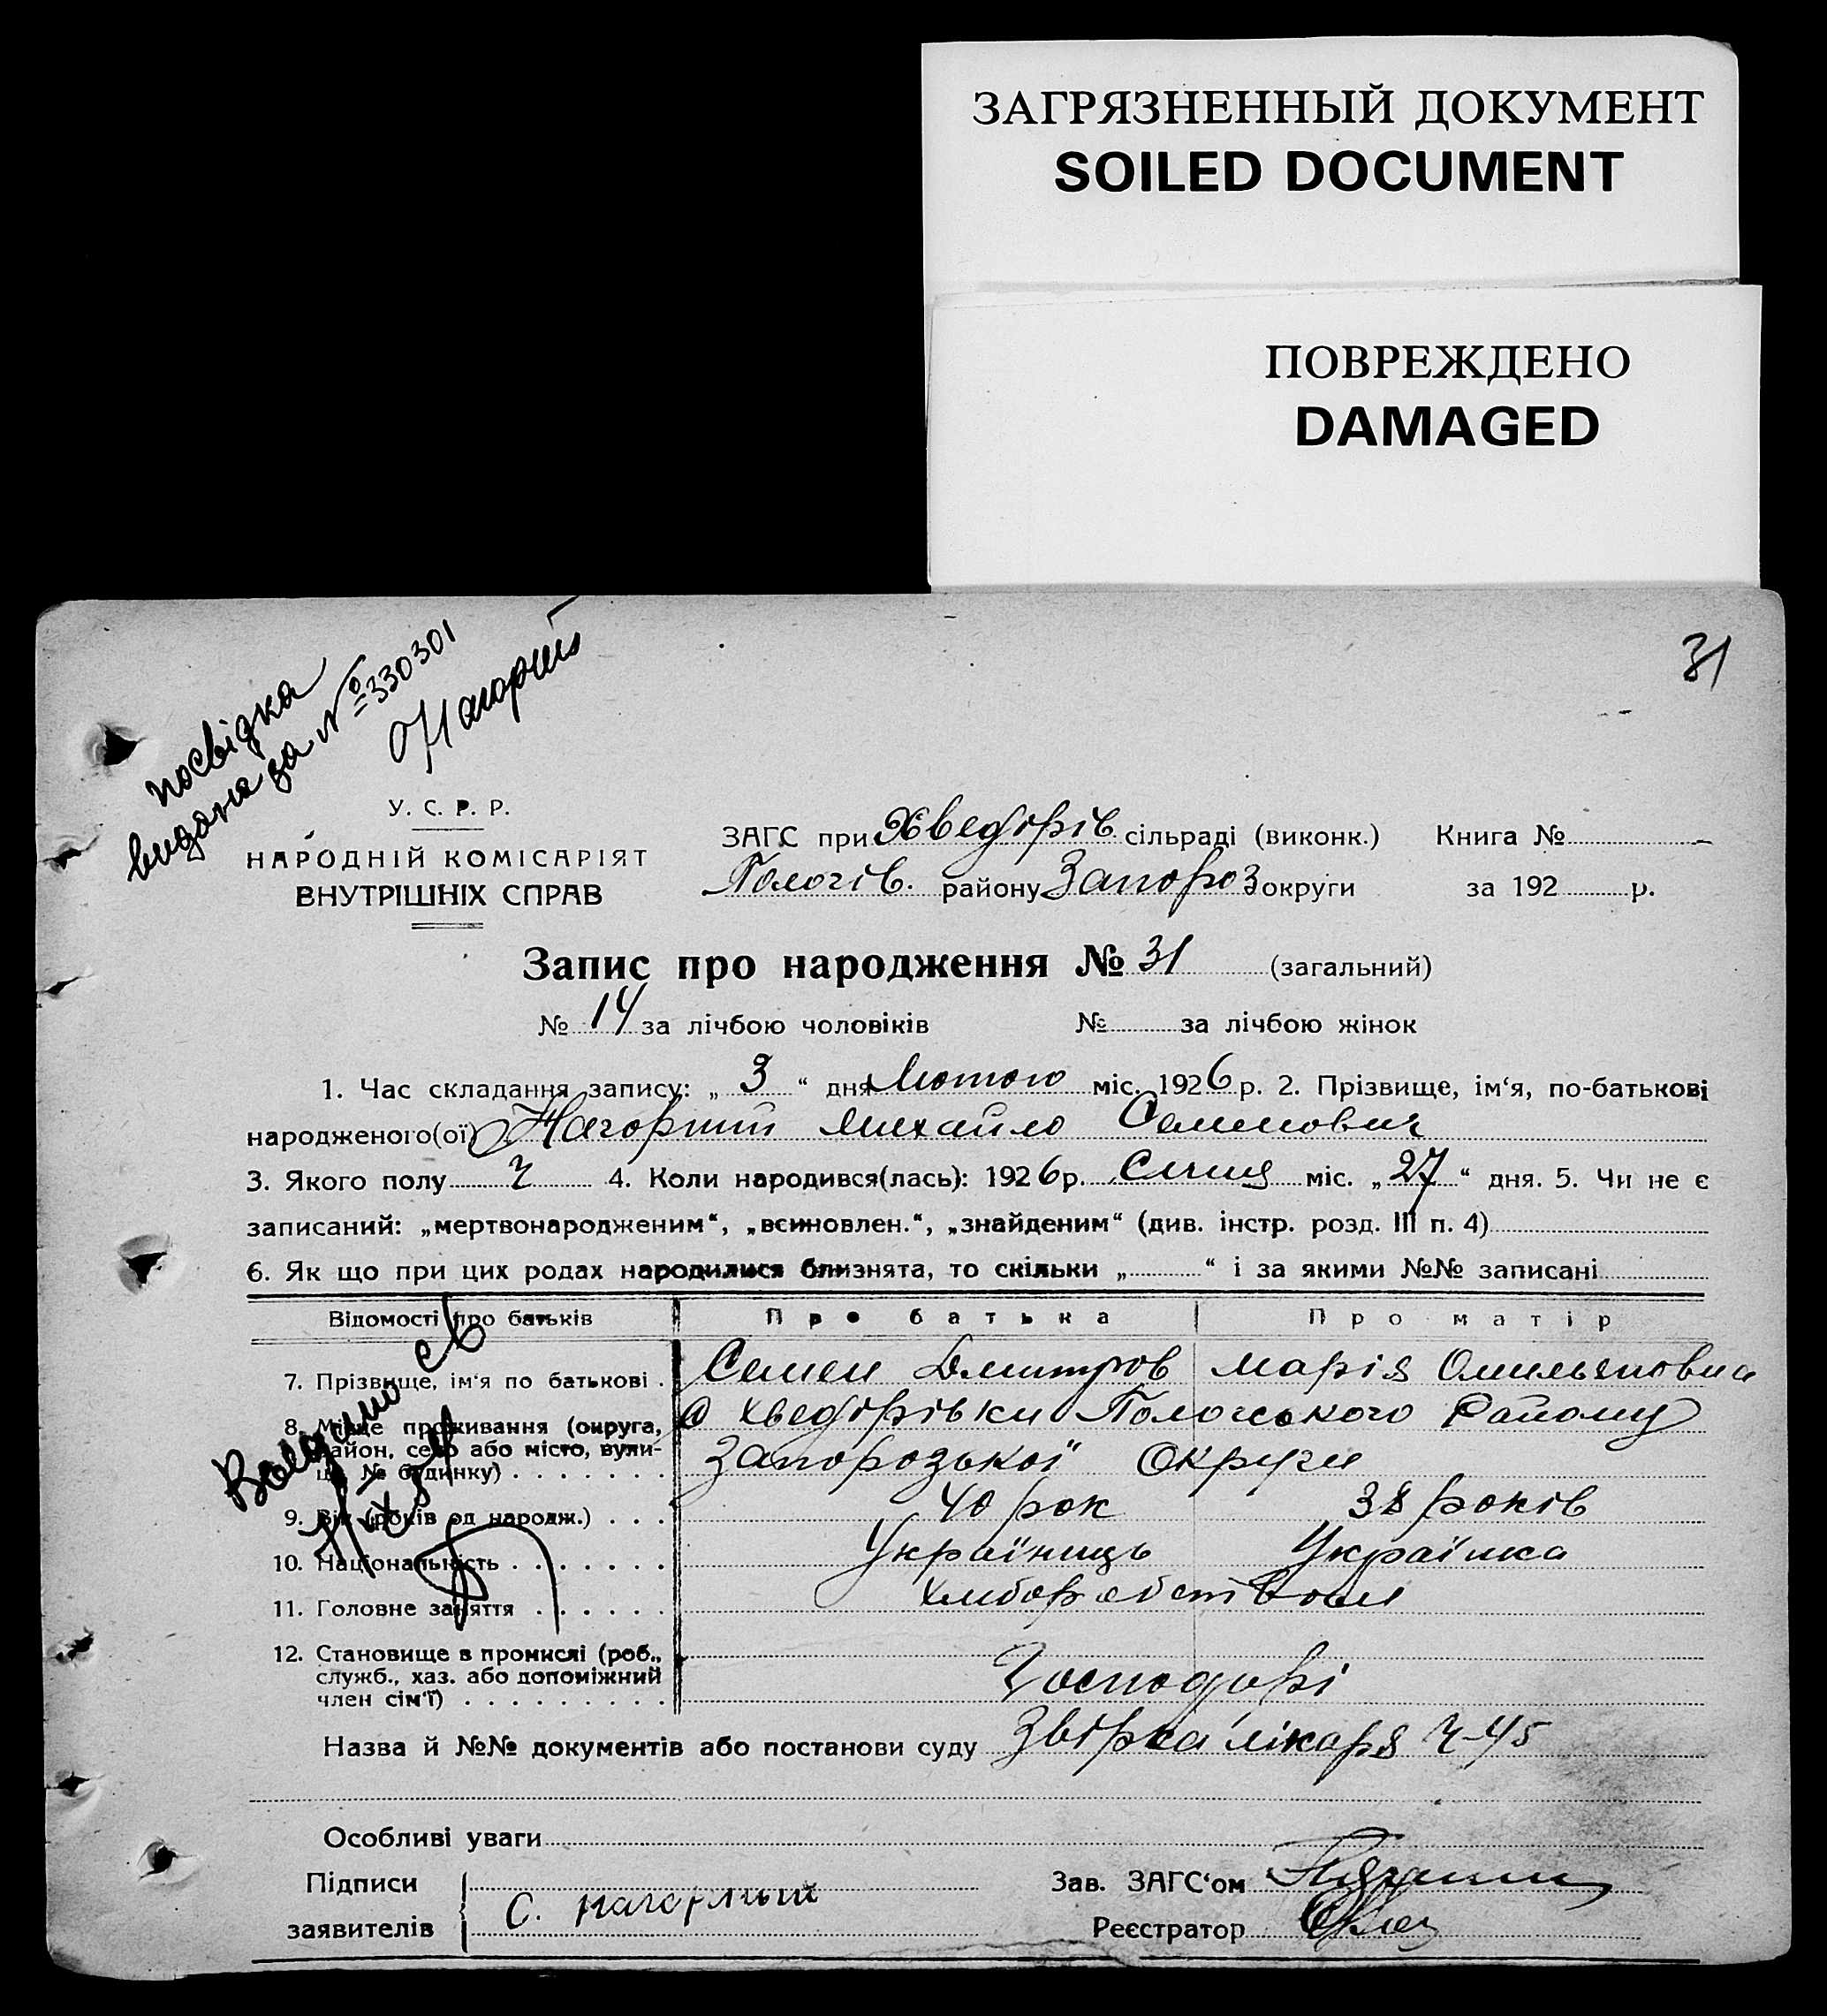 ЗАГРЯЗНЕННЫЙ ДОКУМЕНТ
SOILED DOCUMENT
ПОВРЕЖДЕНО
DAMAGED
31
посвідка
видана за № 330301
У. С. Р. Р.
НАРОДНІЙ КОМІСАРІЯТ
ВНУТРІШНІХ СПРАВ
ЗАГС при Хведорів. сільраді (виконк.) Книга №
Пологів. району Запороз округи за 192 р.
Запис про народження № 31 (загальний)
№ 14 за лічбою чоловіків № за лічбою жінок
1. Час складання запису: „ 3 “ дня Лютого міс. 1926 р. 2. Прізвище, ім‘я, по-батькові
народженого(ої) Нагорний Михайло Семенович
3. Якого полу ч 4. Коли народився(лась): 1926 р. Січня міс. „ 27 “ дня. 5. Чи не є
записаний: „мертвонародженим“, „всиновлен.“, „знайденим“ (див. інстр. розд. III п. 4)
6. Як що при цих родах народилися близнята, то скільки „ “ і за якими №№ записані
Відомості про батьків Про батька Про матір
7. Прізвище, ім‘я по батькові . Семен Дмитров Марія Омильяновна
8. Місце проживання (округа, с Хведорівки Пологського Району
район, село або місто, вули-
ця, № будинку) . . . . . . . Запорозької Округи
9. Вік (років од народж.) . . . 40 рок 38 років
10. Національність . . . . . . . Українець Українка
11. Головне заняття . . . . . .
12. Становище в промислі (роб.,
служб., хаз. або допоміжний
член сім‘ї) . . . . . . . . . Господарі
Назва й №№ документів або постанови суду лікаря ч-45
Особливі уваги
Підписи Зав. ЗАГС‘ом
заявителів С. Нагорный Реєстратор